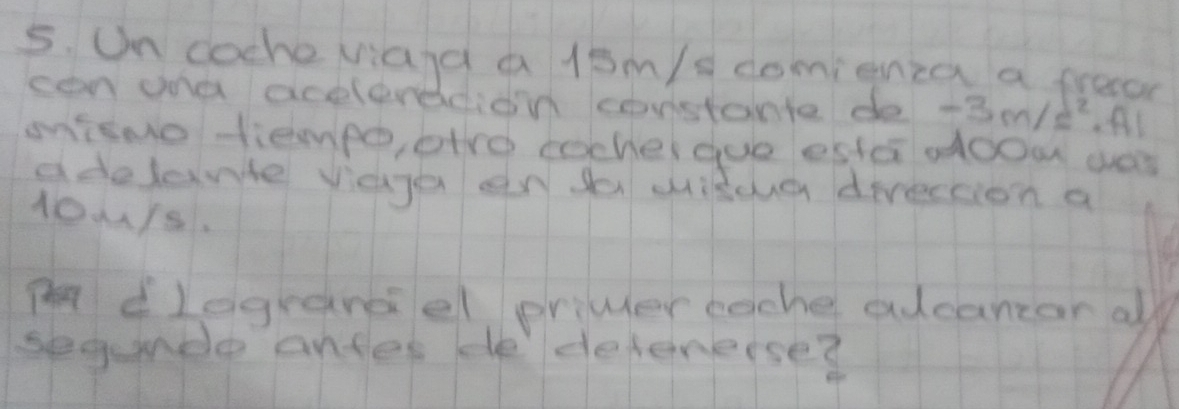 5. Un coche viaja a 15m/s comienza a frenar
con una aceleración constante de -3m/s². Al
mismo tiempo, otro coche, que está a 100m más
adelante viaja en la misma dirección a
10m/s.
¿Logrará el primer coche alcanzar al
segundo antes de detenerse?